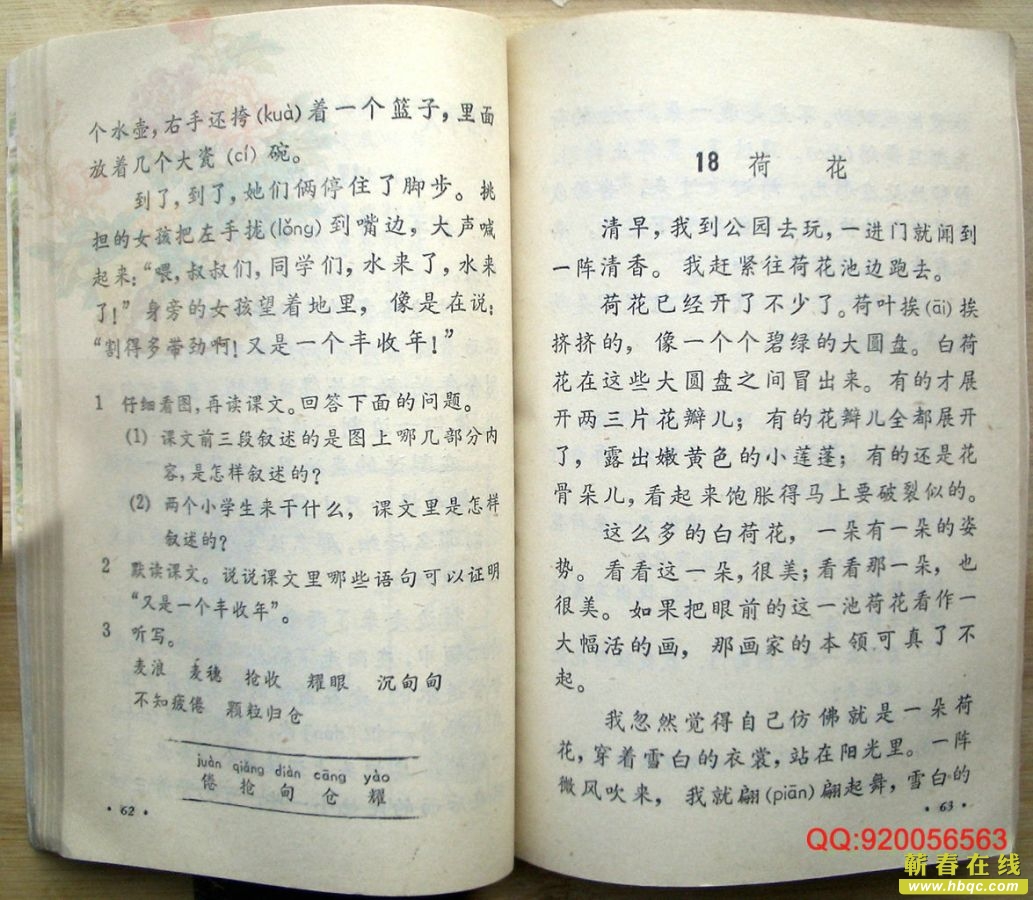 个水壶,右手还挎(kuà)着一个篮子,里面
放着几个大瓷(cí)碗。
到了,到了,她们俩停住了脚步。挑
担的女孩把左手拢(lǒng)到嘴边,大声喊
起来:“喂,叔叔们,同学们,水来了,水来
了!”身旁的女孩望着地里,像是在说:
“割得多带劲啊!又是一个丰收年!”
1 仔细看图,再读课文。回答下面的问题。
(1) 课文前三段叙述的是图上哪几部分内
容,是怎样叙述的?
(2) 两个小学生来干什么,课文里是怎样
叙述的?
2 默读课文。说说课文里哪些语句可以证明
“又是一个丰收年”。
3 听写。
麦浪 麦穗 抢收 耀眼 沉甸甸
不知疲倦 颗粒归仓
juàn qiǎng diàn cāng yào
倦 抢 甸 仓 耀
·62·
18 荷 花
清早,我到公园去玩,一进门就闻到
一阵清香。我赶紧往荷花池边跑去。
荷花已经开了不少了。荷叶挨(āi)挨
挤挤的,像一个个碧绿的大圆盘。白荷
花在这些大圆盘之间冒出来。有的才展
开两三片花瓣儿;有的花瓣儿全都展开
了,露出嫩黄色的小莲蓬;有的还是花
骨朵儿,看起来饱胀得马上要破裂似的。
这么多的白荷花,一朵有一朵的姿
势。看看这一朵,很美;看看那一朵,也
很美。如果把眼前的这一池荷花看作一
大幅活的画,那画家的本领可真了不
起。
我忽然觉得自己仿佛就是一朵荷
花,穿着雪白的衣裳,站在阳光里。一阵
微风吹来,我就翩(piān)翩起舞,雪白的
·63·
QQ:920056563
蕲春在线
www.hbqc.com